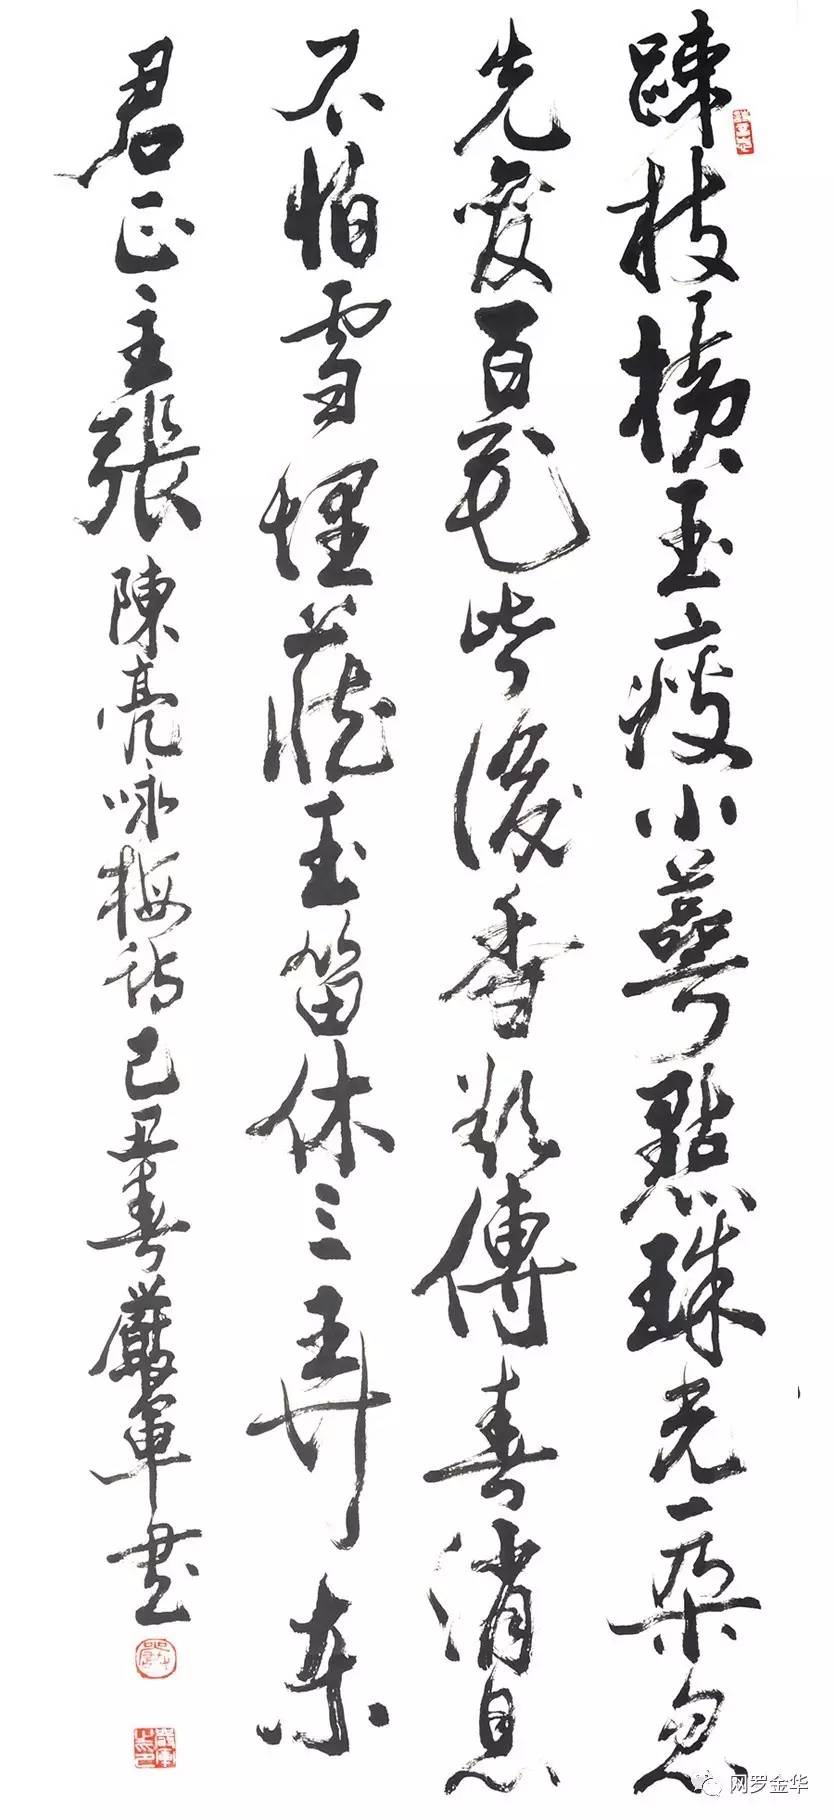 踈枝橫玉瘦小萼點珠光一朵忽
先變百花皆後香欲傳春消息
不怕雪埋藏玉笛休三弄東
君正主張 陳亮咏梅詩己丑春嚴軍書
网罗金华